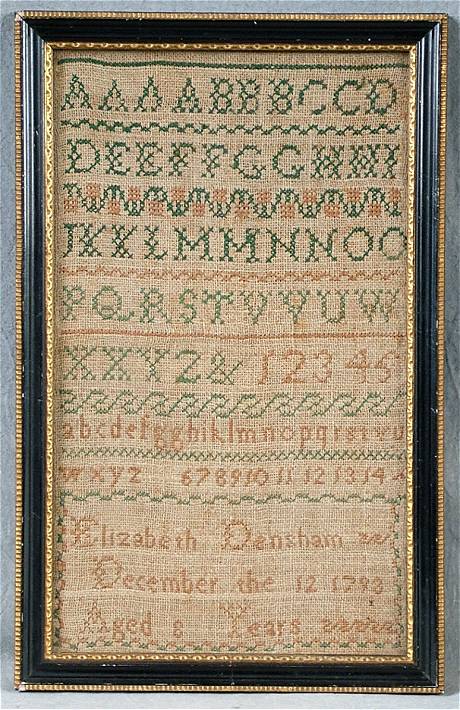 A A A A B B B C C D
D E E F F G G H H I
I K K L M M N N O O
P Q R S T V V U W
X X Y Z & 1 2 3 4 5
a b c d e f g g h i k l m n o p q r s t v u
w x y z 6 7 8 9 10 11 12 13 14
Elizabeth Densham
December the 12 1793
Aged 8 Years